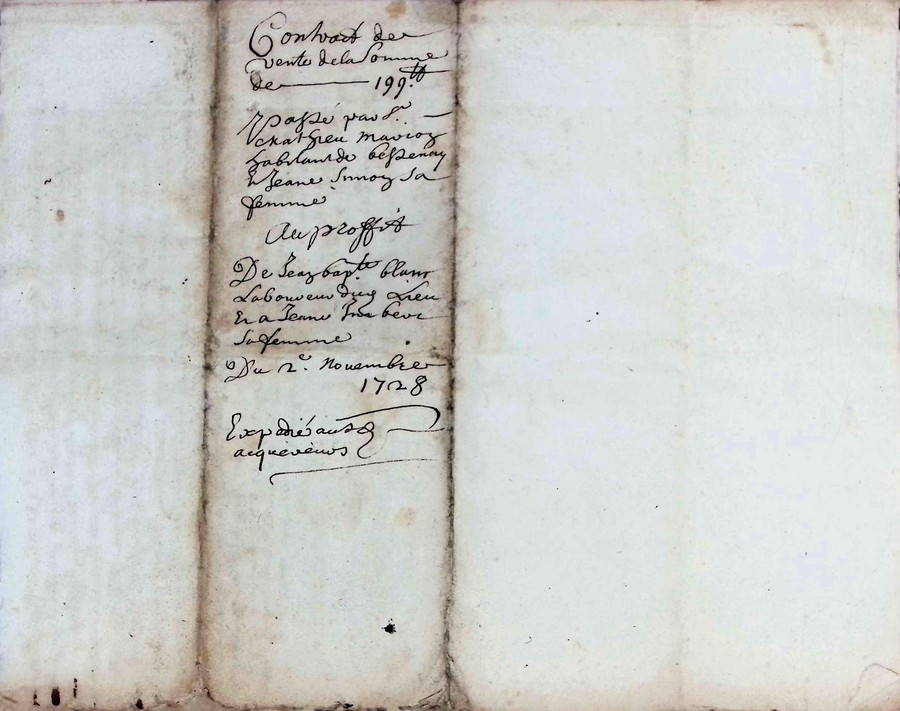 Contract de
vente de la somme
de ——— 199.tt
passé par Sr. —
Mathieu
habitant de bessenay
Et Jeane Simon sa
femme
Au proffit
De Jean bapte. blanc
Laboureur dud Lieu
Et a Jeanne Imbert
sa femme
Du 2e. Novembre
1728
Expedié aux d
acquereurs